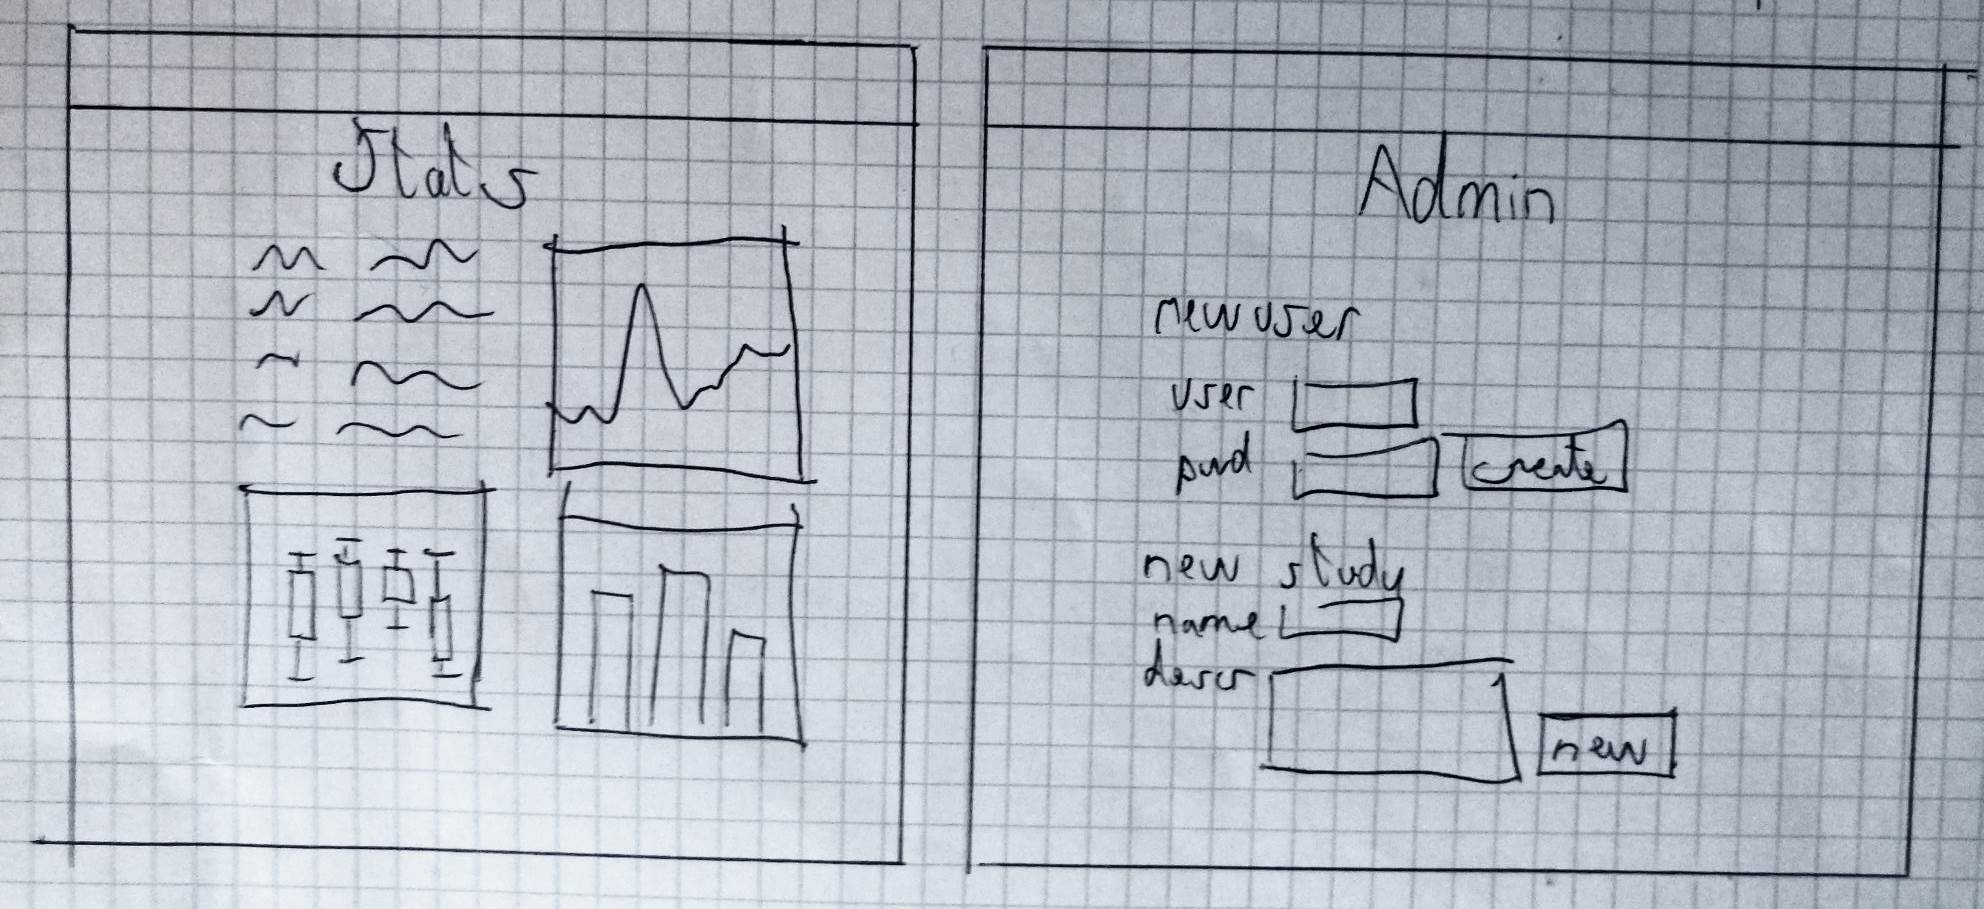 Stats
Admin
new user
user
pwd
create
new study
name
descr
new